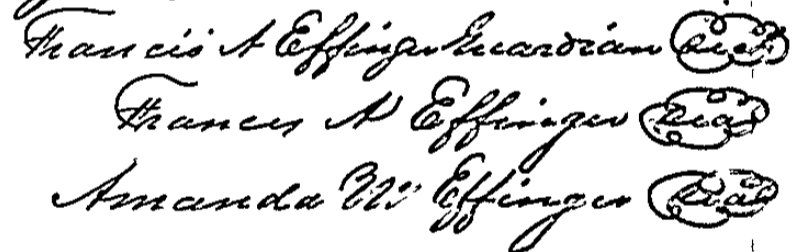 Francis A Effinger Guardian Seal
Francis A Effinger Seal
Amanda W Effinger Seal